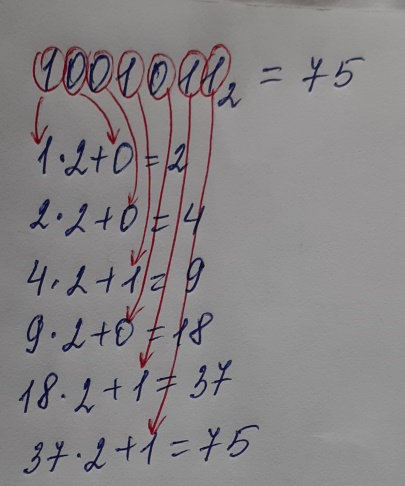 1001011₂ = 75
1·2+0=2
2·2+0=4
4·2+1=9
9·2+0=18
18·2+1=37
37·2+1=75